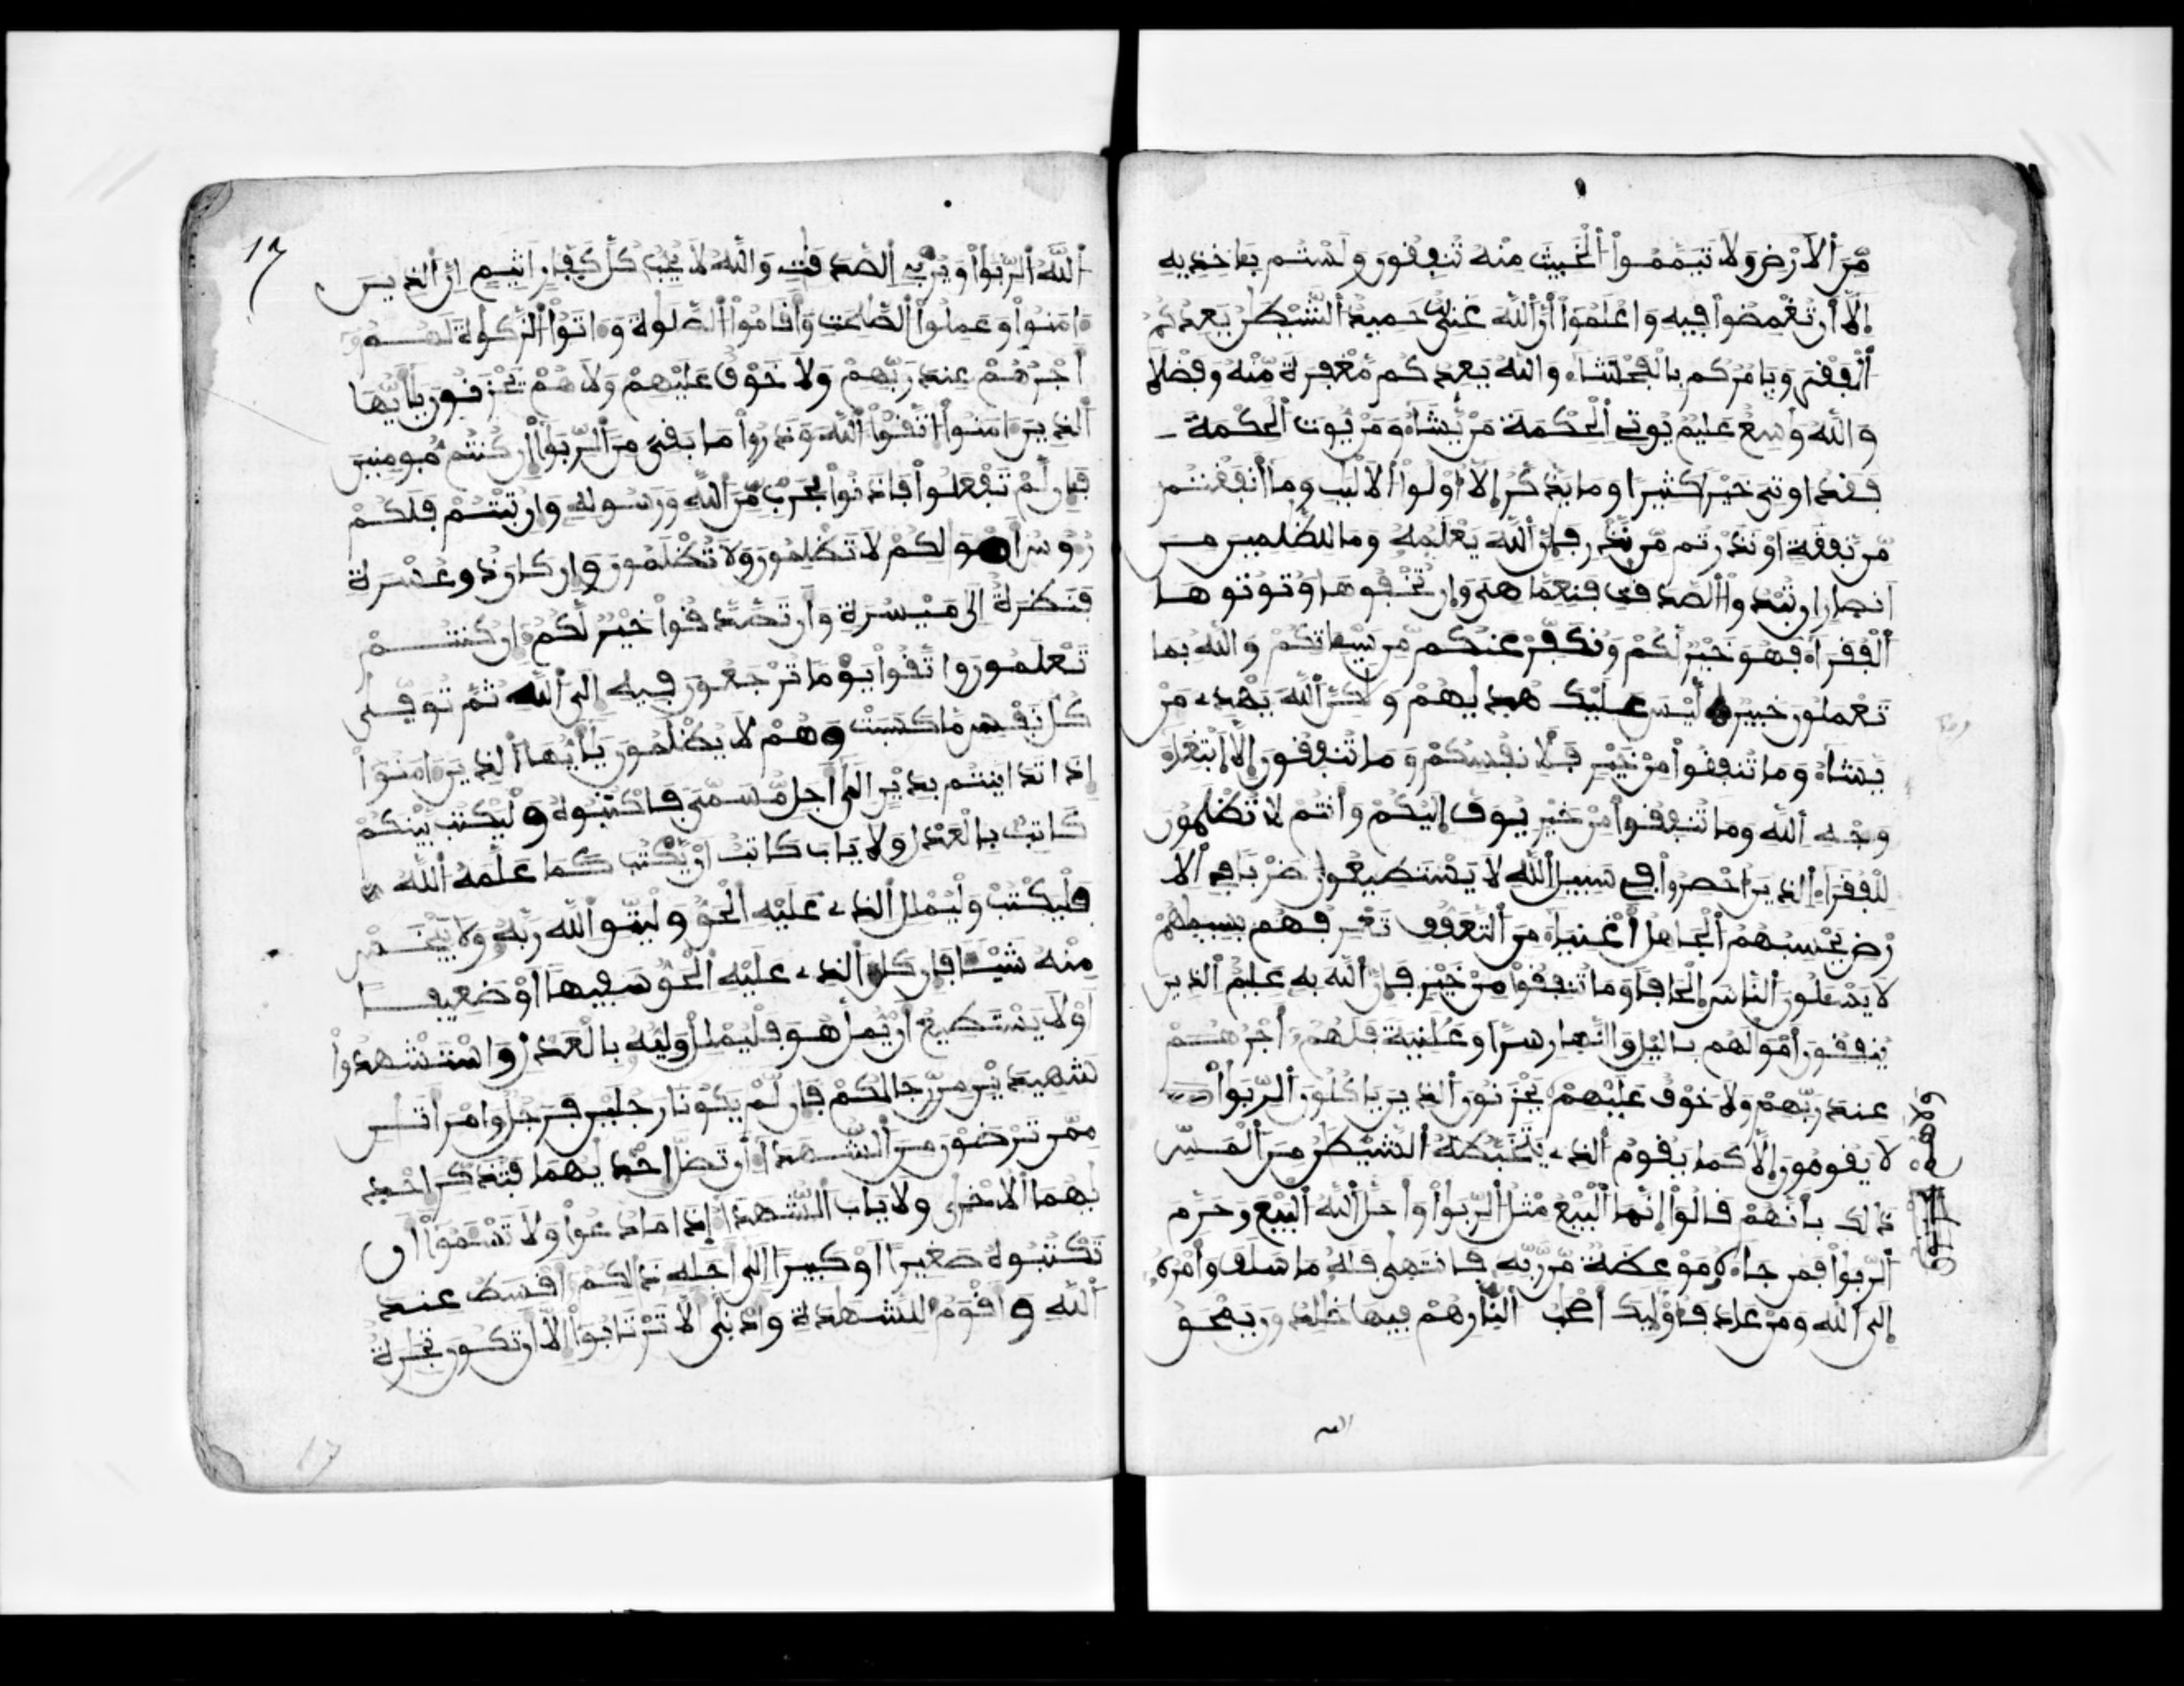 مِّنَ ٱلَارْضِ وَلَا تَيَمَّمُوا۟ ٱلْخَبِيثَ مِنْهُ تُنفِقُونَ وَلَسْتُم بِـَٔاخِذِيهِ
إِلَّا أَن تُغْمِضُوا۟ فِيهِ وَاعْلَمُوٓا۟ أَنَّ ٱللَّهَ غَنِىٌّ حَمِيدٌ ٱلشَّيْطَٰنُ يَعِدُكُمُ
ٱلْفَقْرَ وَيَامُرُكُم بِالْفَحْشَآءِ وَاللَّهُ يَعِدُكُم مَّغْفِرَةً مِّنْهُ وَفَضْلًا
وَاللَّهُ وَٰسِعٌ عَلِيمٌ يُوتِى ٱلْحِكْمَةَ مَنْ يَّشَآءُ وَمَنْ يُّوتَ ٱلْحِكْمَةَ
فَقَدُ اوتِىَ خَيْرًا كَثِيرًا وَمَا يَذَّكَّرُ إِلَّا أُو۟لُوا۟ ٱلَالْبَٰبِ وَمَا أَنفَقْتُم
مِّن نَّفَقَةٍ اوْ نَذَرْتُم مِّن نَّذْرٍ فَإِنَّ ٱللَّهَ يَعْلَمُهُ وَمَا لِلظَّٰلِمِينَ مِنَ
انصِارٍ ان تُبْدُوا۟ ٱلصَّدَقَٰتِ فَنِعِمَّا هِىَ وَإِن تُخْفُوهَا وَتُوتُوهَا
ٱلْفُقَرَآءَ فَهُوَ خَيْرٌ لَّكُمْ وَنُكَفِّرْ عَنكُم مِّن سَيِّـَٔاتِكُمْ وَاللَّهُ بِمَا
تَعْمَلُونَ خَبِيرٌ لَّيْسَ عَلَيْكَ هُدَىٰهُمْ وَلَٰكِنَّ ٱللَّهَ يَهْدِے مَنْ
يَّشَآءُ وَمَا تُنفِقُوا۟ مِنْ خَيْرٍ فَلِأَنفُسِكُمْ وَمَا تُنفِقُونَ إِلَّا ابْتِغَآءَ
وَجْهِ ٱللَّهِ وَمَا تُنفِقُوا۟ مِنْ خَيْرٍ يُوَفَّ إِلَيْكُمْ وَأَنتُمْ لَا تُظْلَمُونَ
لِلْفُقَرَآءِ ٱلذِينَ أُحْصِرُوا۟ فِى سَبِيلِ ٱللَّهِ لَا يَسْتَطِيعُونَ ضَرْبًا فِى ٱلَا
رْضِ يَحْسِبُهُمُ ٱلْجَاهِلُ أَغْنِيَآءَ مِنَ ٱلتَّعَفُّفِ تَعْرِفُهُم بِسِيمَٰهُمْ
لَا يَسْـَٔلُونَ ٱلنَّاسَ إِلْحَافًا وَمَا تُنفِقُوا۟ مِنْ خَيْرٍ فَإِنَّ ٱللَّهَ بِهِ عَلِيمٌ ٱلذِينَ
يُنفِقُونَ أَمْوَٰلَهُم بِاليْلِ وَالنَّهِارِ سِرًّا وَعَلَٰنِيَةً فَلَهُمُ أَجْرُهُمْ
عِندَ رَبِّهِمْ وَلَا خَوْفٌ عَلَيْهِمْ يَحْزَنُونَ ٱلذِينَ يَاكُلُونَ ٱلرِّبَوٰا۟
لَا يَقُومُونَ إِلَّا كَمَا يَقُومُ ٱلذِے يَتَخَبَّطُهُ ٱلشَّيْطَٰنُ مِنَ ٱلْمَسِّ
ذَٰلِكَ بِأَنَّهُمْ قَالُوٓا۟ إِنَّمَا ٱلْبَيْعُ مِثْلُ ٱلرِّبَوٰا۟ وَأَحَلَّ ٱللَّهُ ٱلْبَيْعَ وَحَرَّمَ
ٱلرِّبَوٰا۟ فَمَن جَآءَهُ مَوْعِظَةٌ مِّن رَّبِّهِ فَانتَهَىٰ فَلَهُ مَا سَلَفَ وَأَمْرُهُ
إِلَى ٱللَّهِ وَمَنْ عَادَ فَأُو۟لَٰٓئِكَ أَصْحَٰبُ ٱلنِّارِ هُمْ فِيهَا خَٰلِدُونَ يَمْحَقُ
17
ٱللَّهُ ٱلرِّبَوٰا۟ وَيُرْبِى ٱلصَّدَقَٰتِ وَاللَّهُ لَا يُحِبُّ كُلَّ كَفِّارٍ اثِيمٍ انَّ ٱلذِينَ
ءَامَنُوا۟ وَعَمِلُوا۟ ٱلصَّٰلِحَٰتِ وَأَقَامُوا۟ ٱلصَّلَوٰةَ وَءَاتَوُا۟ ٱلزَّكَوٰةَ لَهُمُ
أَجْرُهُمْ عِندَ رَبِّهِمْ وَلَا خَوْفٌ عَلَيْهِمْ وَلَا هُمْ يَحْزَنُونَ يَٰٓأَيُّهَا
ٱلذِينَ ءَامَنُوا۟ اتَّقُوا۟ ٱللَّهَ وَذَرُوا۟ مَا بَقِىَ مِنَ ٱلرِّبَوٰا۟ إِن كُنتُم مُّومِنِينَ
فَإِن لَّمْ تَفْعَلُوا۟ فَاذَنُوا۟ بِحَرْبٍ مِّنَ ٱللَّهِ وَرَسُولِهِ وَإِن تُبْتُمْ فَلَكُمْ
رُءُوسُ أَمْوَٰلِكُمْ لَا تَظْلِمُونَ وَلَا تُظْلَمُونَ وَإِن كَانَ ذُو عُسْرَةٍ
فَنَظِرَةٌ إِلَىٰ مَيْسُرَةٍ وَأَن تَصَّدَّقُوا۟ خَيْرٌ لَّكُمُ إِن كُنتُمْ
تَعْلَمُونَ وَاتَّقُوا۟ يَوْمًا تُرْجَعُونَ فِيهِ إِلَى ٱللَّهِ ثُمَّ تُوَفَّىٰ
كُلُّ نَفْسٍ مَّا كَسَبَتْ وَهُمْ لَا يُظْلَمُونَ يَٰٓأَيُّهَا ٱلذِينَ ءَامَنُوٓا۟
إِذَا تَدَايَنتُم بِدَيْنٍ إِلَىٰٓ أَجَلٍ مُّسَمّىً فَاكْتُبُوهُ وَلْيَكْتُب بَّيْنَكُمْ
كَاتِبٌ بِالْعَدْلِ وَلَا يَابَ كَاتِبٌ أَنْ يَّكْتُبَ كَمَا عَلَّمَهُ ٱللَّهُ
فَلْيَكْتُبْ وَلْيُمْلِلِ ٱلذِے عَلَيْهِ ٱلْحَقُّ وَلْيَتَّقِ ٱللَّهَ رَبَّهُ وَلَا يَبْخَسْ
مِنْهُ شَيْـًٔا فَإِن كَانَ ٱلذِے عَلَيْهِ ٱلْحَقُّ سَفِيهًا أَوْ ضَعِيفًا
أَوْ لَا يَسْتَطِيعُ أَنْ يُّمِلَّ هُوَ فَلْيُمْلِلْ وَلِيُّهُ بِالْعَدْلِ وَاسْتَشْهِدُوا۟
شَهِيدَيْنِ مِن رِّجَالِكُمْ فَإِن لَّمْ يَكُونَا رَجُلَيْنِ فَرَجُلٌ وَامْرَأَتَٰنِ
مِمَّن تَرْضَوْنَ مِنَ ٱلشُّهَدَآءِ أَن تَضِلَّ إِحْدَىٰهُمَا فَتُذَكِّرَ إِحْدَ
ىٰهُمَا ٱلُاخْرَىٰ وَلَا يَابَ ٱلشُّهَدَآءُ إِذَا مَا دُعُوا۟ وَلَا تَسْـَٔمُوٓا۟ أَن
تَكْتُبُوهُ صَغِيرًا أَوْ كَبِيرًا إِلَىٰٓ أَجَلِهِ ذَٰلِكُمُ أَقْسَطُ عِندَ
ٱللَّهِ وَأَقْوَمُ لِلشَّهَٰدَةِ وَأَدْنَىٰٓ أَلَّا تَرْتَابُوٓا۟ إِلَّا أَن تَكُونَ تِجَٰرَةٌ
17